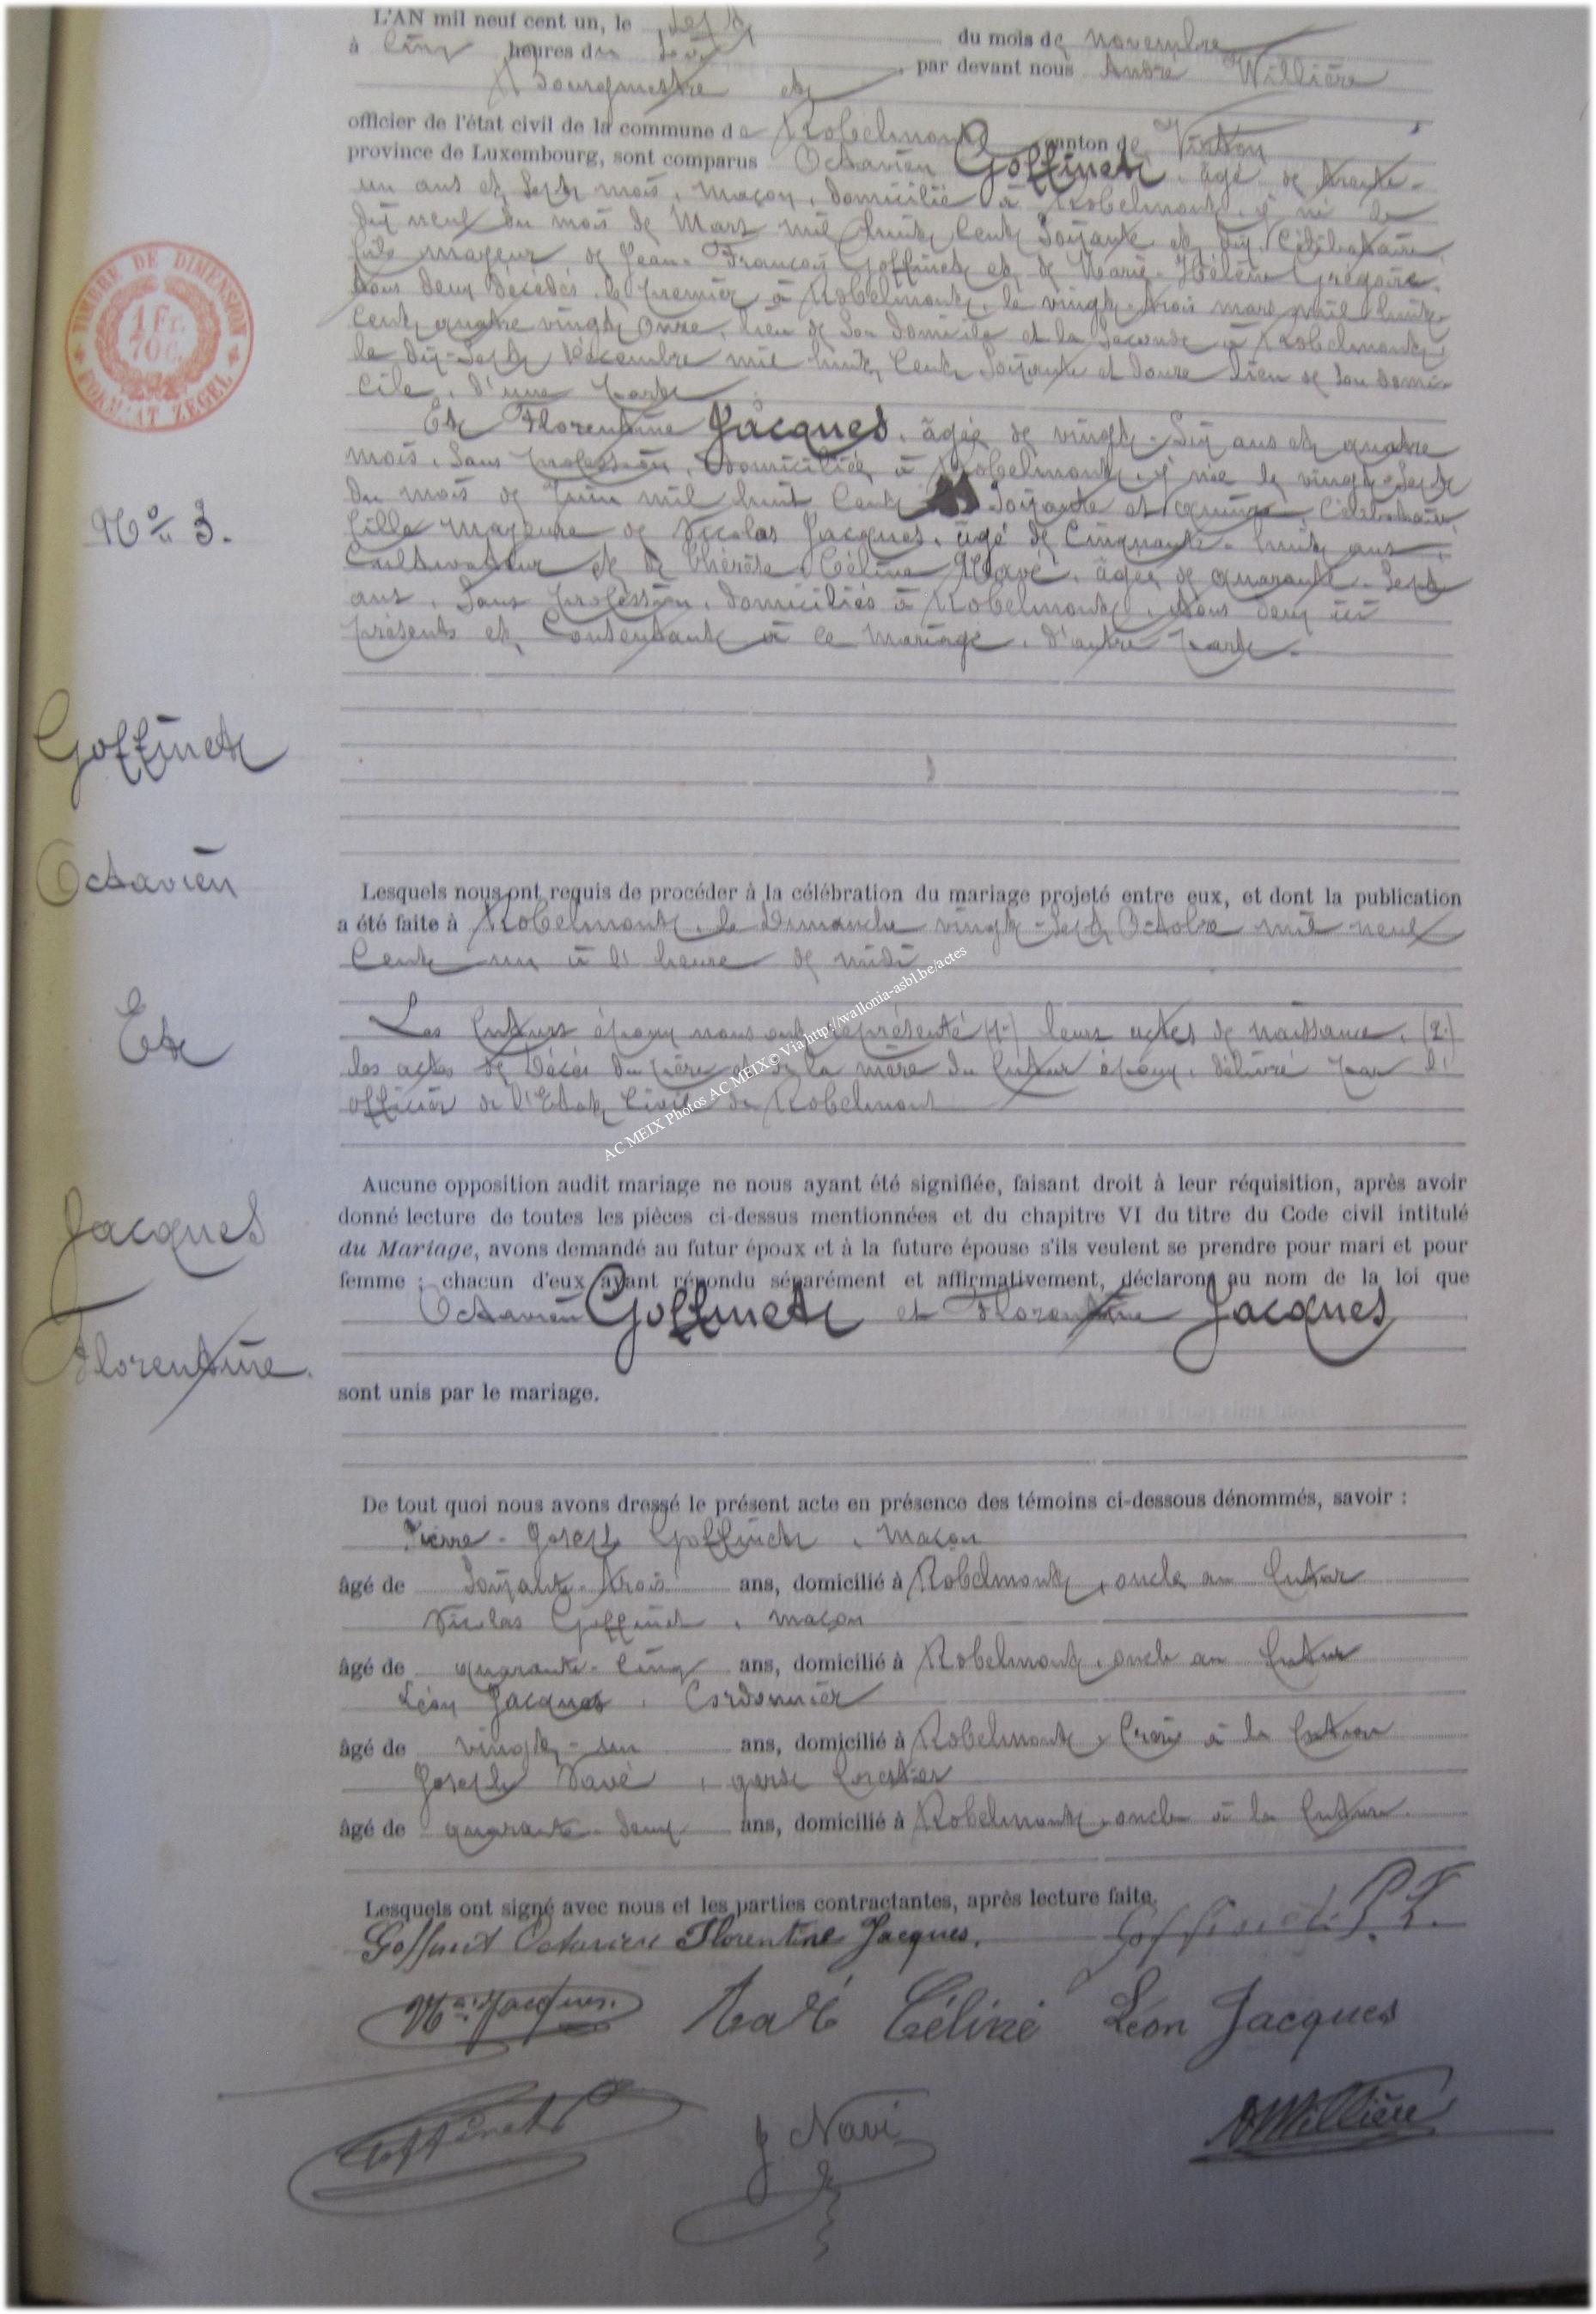 L'AN mil neuf cent un, le sept
du mois de novembre
à cinq heures du soir
, par devant nous André Willière
Bourgmestre et
officier de l'état civil de la commune de Robelmont canton de Virton
province de Luxembourg, sont comparus Octavien Goffinet, âgé de trente-
un ans et sept mois, maçon, domicilié à Robelmont, y né le
dix neuf du mois de Mars mil huit cent soixante et dix, Célibataire,
fils majeur de Jean-François Goffinet et de Marie-Hélène Grégoire,
tous deux décédés, le premier à Robelmont, le vingt-trois mars mil huit
cent quatre vingt onze, lieu de son domicile et la seconde à Robelmont,
le dix-sept décembre mil huit cent soixante et douze lieu de son domi-
cile, d'une part
Et Florentine Jacques, âgée de vingt-six ans et quatre
mois, sans profession, domiciliée à Robelmont, y née le vingt-sept
du mois de Juin mil huit cent soixante et quinze, Célibataire,
fille majeure de Nicolas Jacques, âgé de cinquante-huit ans,
Cultivateur et de Thérèse Céline Navé, âgée de quarante-sept
ans, sans profession, domiciliés à Robelmont, tous deux ici
présents et consentant à ce mariage, d'autre part.
TIMBRE DE DIMENSION
1 Fr.
70 C.
FORMAAT ZEGEL
No 3.
Goffinet
Octavien
Et
Jacques
Florentine.
Lesquels nous ont requis de procéder à la célébration du mariage projeté entre eux, et dont la publication
a été faite à Robelmont, le Dimanche vingt-sept Octobre mil neuf
cent un à l'heure de midi
Les futurs époux nous ont représenté (1°) leurs actes de naissance, (2°)
les actes de décès du père et de la mère du futur époux, délivré par l'
officier de l'Etat Civil de Robelmont
AC MEIX Photos AC MEIX© Via http://wallonia-asbl.be/actes
Aucune opposition audit mariage ne nous ayant été signifiée, faisant droit à leur réquisition, après avoir
donné lecture de toutes les pièces ci-dessus mentionnées et du chapitre VI du titre du Code civil intitulé
du Mariage, avons demandé au futur époux et à la future épouse s'ils veulent se prendre pour mari et pour
femme : chacun d'eux ayant répondu séparément et affirmativement, déclarons au nom de la loi que
Octavien Goffinet et Florentine Jacques
sont unis par le mariage.
De tout quoi nous avons dressé le présent acte en présence des témoins ci-dessous dénommés, savoir :
Pierre-Joseph Goffinet, maçon
âgé de soixante-trois ans, domicilié à Robelmont, oncle au futur
Nicolas Goffinet, maçon
âgé de quarante-cinq ans, domicilié à Robelmont, oncle au futur
Léon Jacques, Cordonnier
âgé de vingt-un ans, domicilié à Robelmont, frère à la future
Joseph Navé, garde forestier
âgé de quarante-deux ans, domicilié à Robelmont, oncle à la future.
Lesquels ont signé avec nous et les parties contractantes, après lecture faite.
Goffinet Octavien Florentine Jacques. Goffinet P. J.
Nas. Jacques. Navé Céline Léon Jacques
Goffinet J Navé AWillière